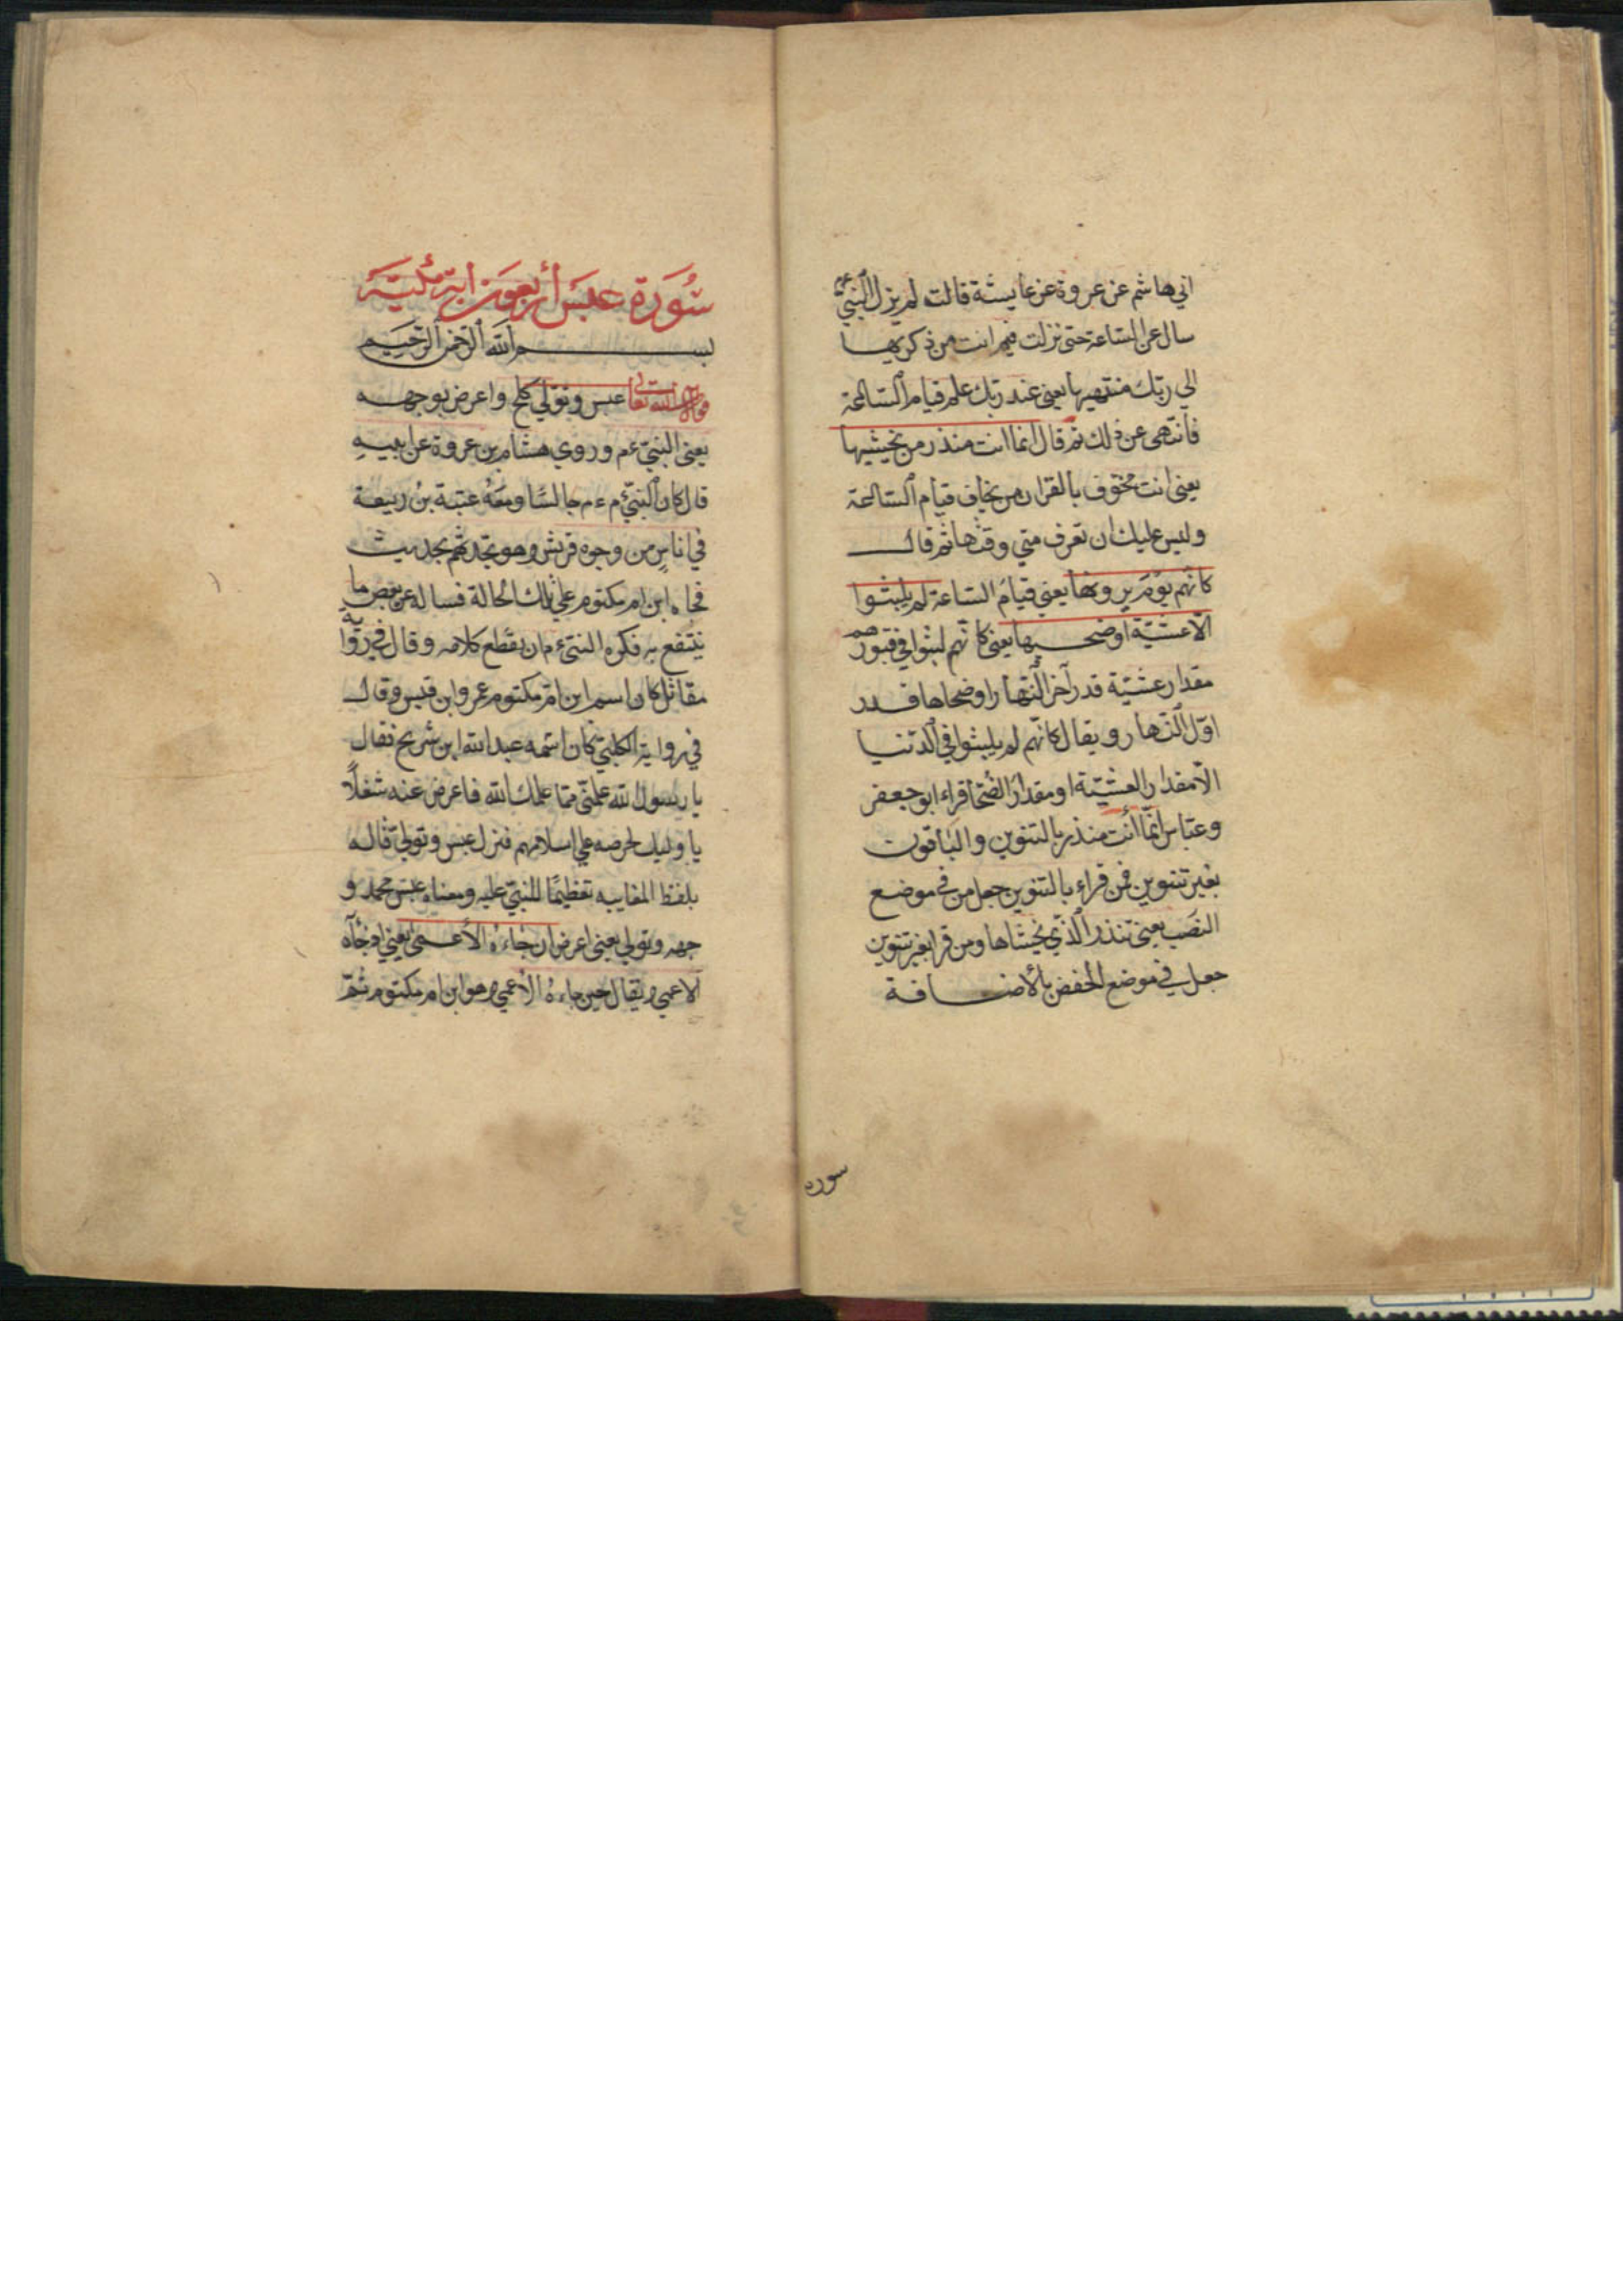 ابي هاشم عن عروة عن عايشة قالت لم يزل النبي عم
سال عن الساعة حتى نزلت فيم انت من ذكريها
الي ربك منتهيها يعني عند ربك علم قيام الساعة
فانتهى عن ذلك ثم قال انما انت منذر من يخشيها
يعني انت مخوف بالقران من يخاف قيام الساعة
وليس عليك ان تعرف متي وقتها ثم قال
كانهم يوم يرونها يعني قيام الساعة لم يلبثوا
الا عشية او ضحيها يعني كانهم لبثوا في قبورهم
مقدار عشية قدر آخر النهار او ضحاها قدر
اول النهار ويقال كانهم لم يلبثوا في الدنيا
الا مقدار العشية او مقدار الضحا قراء ابو جعفر
وعباس انما أنت منذر بالتنوين والباقون
بغير تنوين فمن قراء بالتنوين جعل من في موضع
النصب يعني تنذر الذي يخشاها ومن قرا بغير تنوين
جعل في موضع الخفض بالأضافة
سوره
سُورَة عبَسَ أربعون اية مكية
بسم الله الرحمن الرحيم
قوله تعالى عبس وتولي كلح واعرض بوجهه
يعني النبي ءم وروي هشام بن عروة عن ابيه
قال كان النبي ءم جالسًا ومعه عتبة بن ربيعة
في اناس من وجوه قريش وهو يحدثهم بحديث
فجاه ابن ام مكتوم علي تلك الحالة فساله عن بعض ما
ينتفع به فكره النبي ءم ان يقطع كلامه وقال في رواية
مقاتل كان اسم ابن ام مكتوم عمرو ابن قيس وقال
في رواية الكلبي كان اسمه عبد الله ابن شريح فقال
يا رسول الله علمني مما علمك الله فاعرض عنه شغلاً
باوليك لحرصه علي اسلامهم فنزل عبس وتولي قاله
بلفظ المغايبه تعظيمًا للنبي عليه ومعناه عبس محمد و
جهه وتولي يعني اعرض ان جاءه الأعمى يعني اذ جآه
الاعمي ويقال حين جاءه الاعمي وهو ابن ام مكتوم ثم